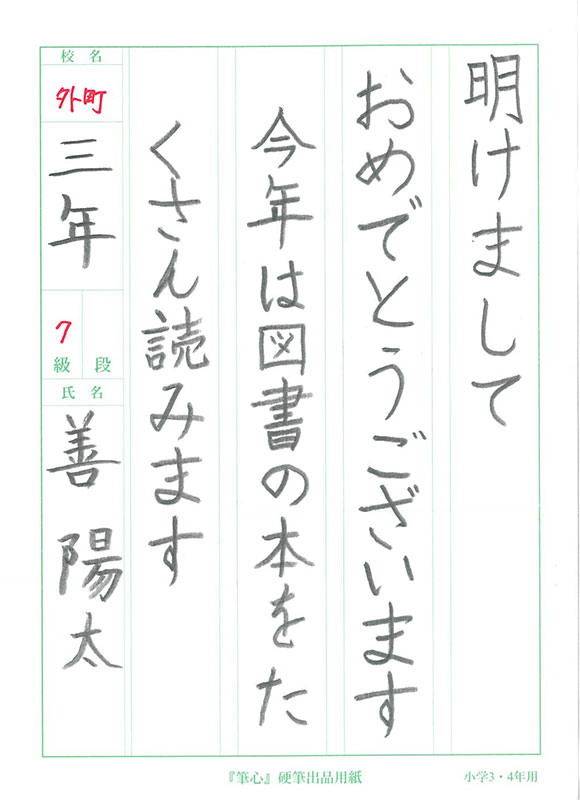 明けまして
おめでとうございます
今年は図書の本をた
くさん読みます
校名
外町
三年
7
級 段
氏名
善 陽太
『筆心』硬筆出品用紙
小学3・4年用